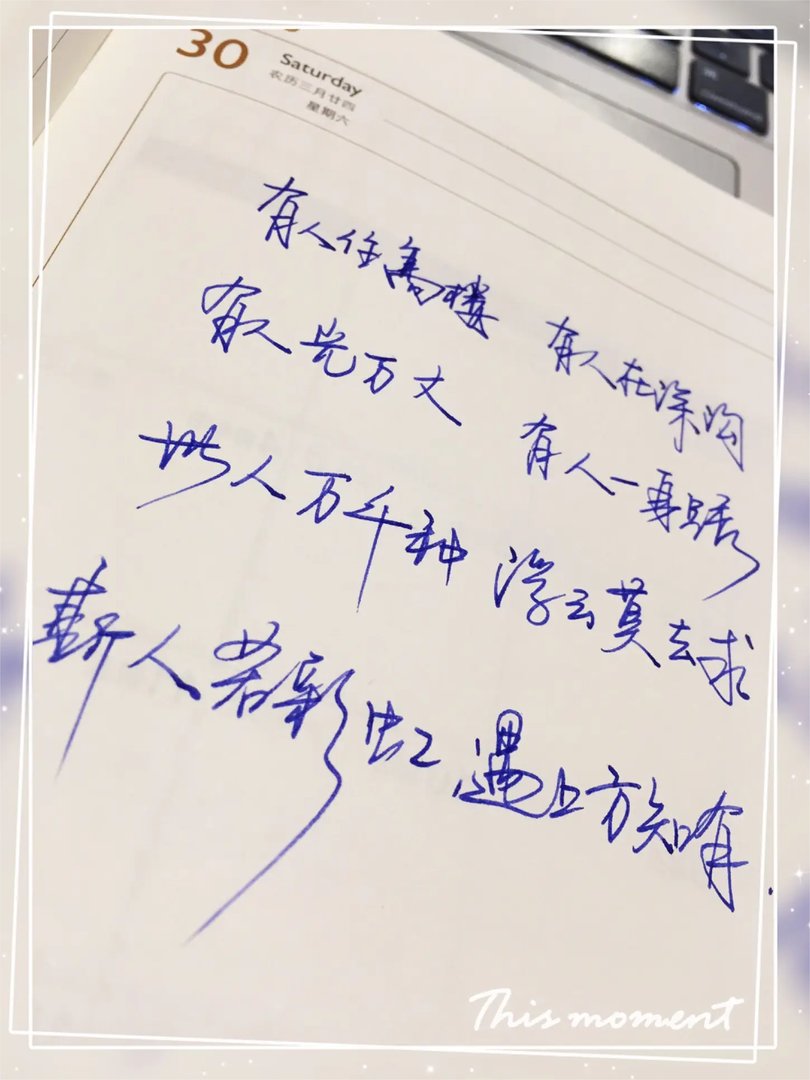 30
Saturday
农历三月廿四
星期六
有人住高楼 有人在深沟
有人光万丈 有人一
世人万千种 浮云莫去求
斯人若彩虹 遇上方知有.
This moment